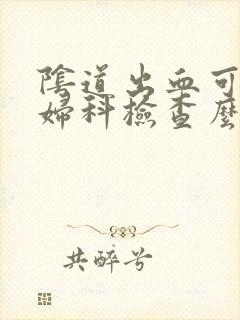 陰道出血可
婦科檢查麼
共醉兮